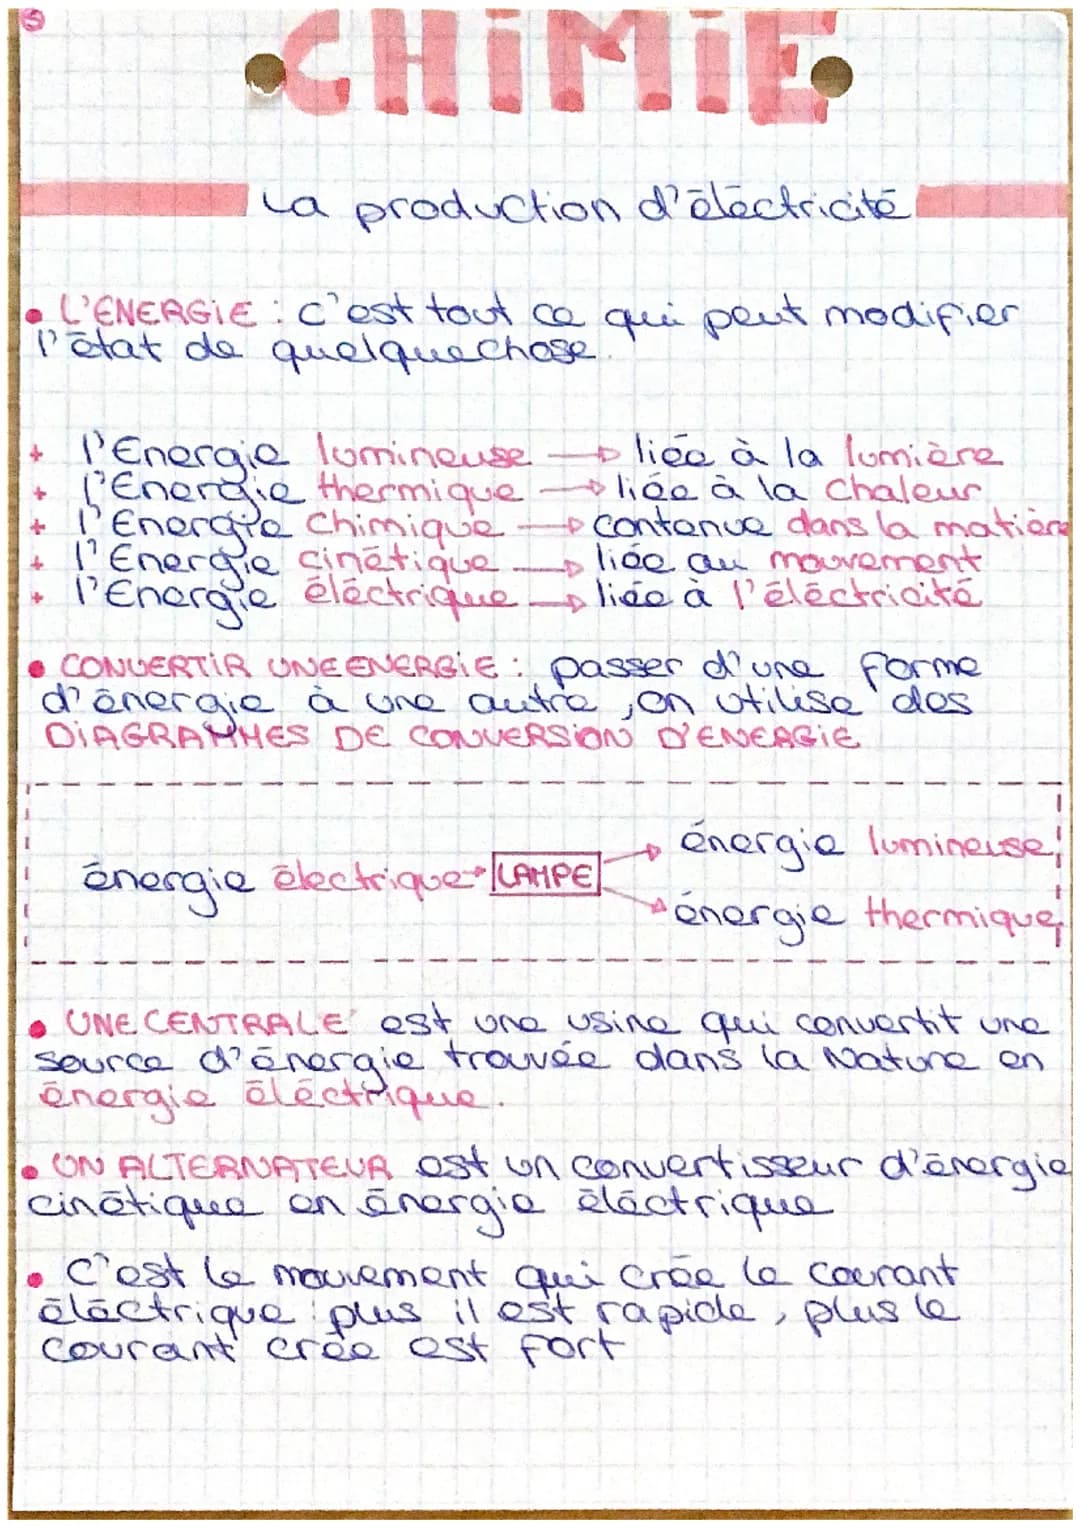 CHiMiE
La production d'éléctricité
• L'ENERGiE : c'est tout ce qui peut modifier
l'état de quelquechose.
+ l'Energie lumineuse → liée à la lumière
+ l'Energie thermique → liée à la chaleur
+ l'Energie chimique → contenue dans la matière
+ l'Energie cinétique → liée au mouvement
+ l'Energie éléctrique → liée à l'éléctricité
• CONVERTiR UNE ENERGiE : passer d'une forme
d'énergie à une autre, on utilise des
DiAGRAMMES DE CONVERSiON D'ENERGiE
énergie lumineuse
énergie électrique → LAMPE
énergie thermique
• UNE CENTRALE est une usine qui convertit une
source d'énergie trouvée dans la Nature en
énergie éléctrique.
• UN ALTERNATEUR est un convertisseur d'énergie
cinétique en énergie éléctrique
• C'est le mouvement qui crée le courant
éléctrique : plus il est rapide, plus le
courant crée est fort